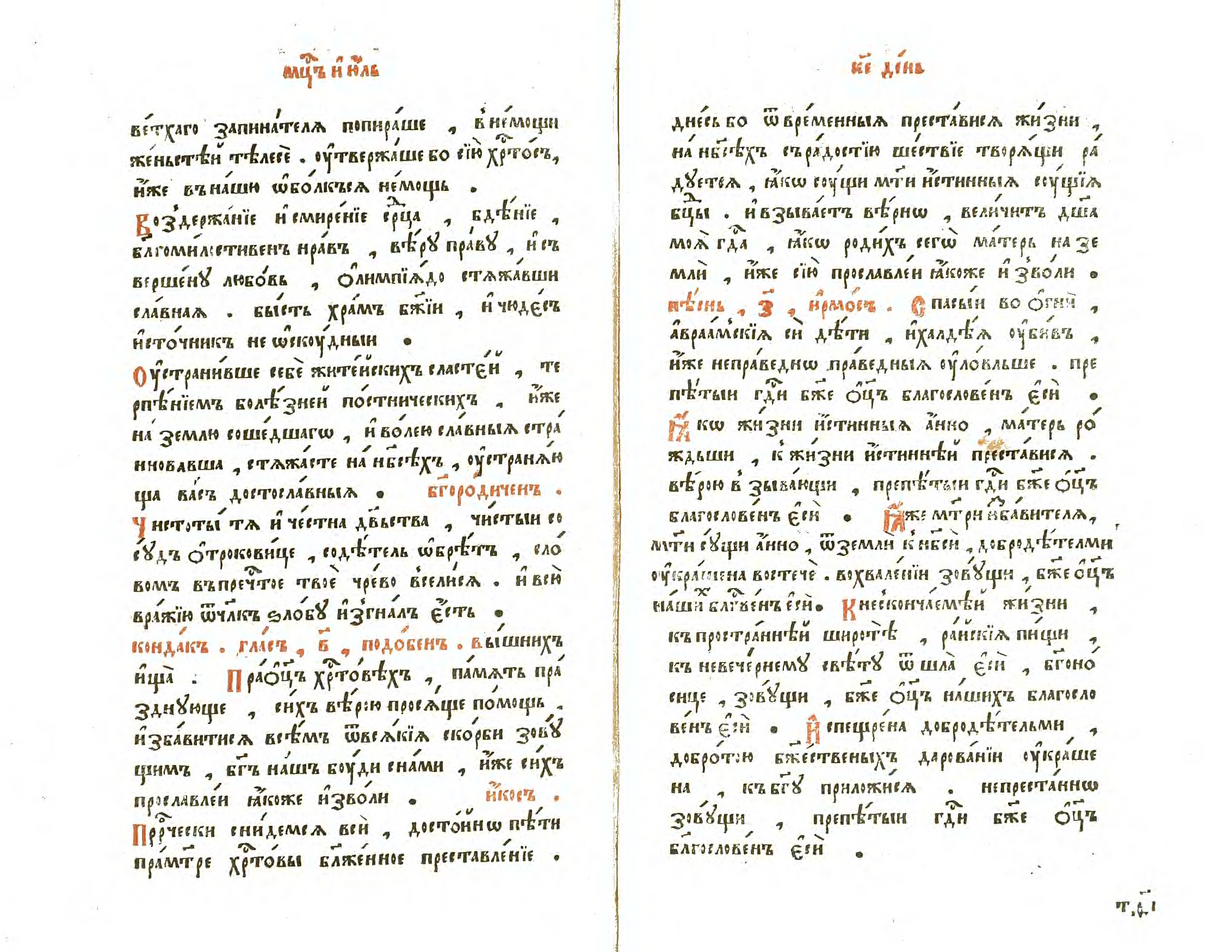 мц҃ъ и҆ ю҆́ль
ве́тхаго запина́телѧ попира́ше , в не́мощи
же́ньстѣй тѣлесѐ . оу҆твержа́ше бо сїю̀ хрⷭ҇то́съ,
и҆́же въ на́шю ѡ҆бо́лкъсѧ не́мощь .
Воздержа́нїе и҆ смире́нїе срⷣца , бдѣ́нїе ,
благоми́лостивенъ нра́въ , вѣ́рꙋ пра́вꙋ , и҆ съ
верше́нꙋ любо́вь , Ѻ҆лимпїѧ́до стѧжа́вши
сла́внаѧ . бы́сть хра́мъ бж҃їи , и҆ чюде́съ
и҆сто́чникъ не ѡ҆скоу́дныи .
Оу҆страни́вше себѐ жите́йскихъ сласте́й , те
рпѣ́нїемъ болѣ́зней по́стническихъ , и҆́же
на́ землю соше́дшагѡ , и҆ во́лею сла́выѧ стра́
нновавша , стѧжа́сте на нб҃сѣ́хъ , оу҆странѧ́ю
ща ва́съ достосла́вныѧ . бг҃оро́диченъ .
Чистоты̀ тѧ и҆ че́стна дв҃ьства , чи́стыи со
сꙋ́дъ Ѻ҆трокови́це , соде́тель ѡ҆брѣ́тъ , сло́
вомъ въ пречⷭ҇тое твоѐ чре́во всели́сѧ . и҆ всю̀
вра́жїю ѿ чл҃къ ѕло́бꙋ и҆згна́лъ є҆́сть .
конда́къ . гла́съ , в҃ , подо́бенъ . вы́шнихъ
и҆ща̀ . Праѻ҆ц҃ъ хрⷭ҇то́вѣхъ , па́мѧть пра́
зднꙋюще , си́хъ вѣ́рою просѧ́ще по́мощь .
и҆зба́витисѧ всѣ́мъ ѿ всѧ́кїѧ ско́рби зовꙋ́
щимъ , бг҃ъ на́шъ боу́ди сна́ми , и҆́же си́хъ
просла́влеи ꙗ҆́коже и҆зво́ли . и҆́косъ .
Прⷪ҇ро́чески сни́демсѧ всѝ , досто́йнѡ пѣ́ти
прамт҃ре хрⷭ҇то́вы бл҃же́нное преставле́нїе .
к҃е де́нь
дне́сь бо ѿ вре́менныѧ преста́висѧ жи́зни ,
на нб҃сѣ́хъ съ ра́достїю ше́ствїе творѧ́щи ра́
дꙋетсѧ , ꙗ҆́кѡ соу́щи мт҃и и҆́стинныѧ соу́щїѧ
бц҃ы . и҆ взыва́етъ вѣ́рнѡ , вели́читъ дш҃а
моѧ̀ гдⷭ҇а , ꙗ҆́кѡ роди́хъ сегѡ̀ ма́терь на зе
млѝ , и҆́же сїю̀ просла́влеи ꙗ҆́коже и҆зво́ли .
пѣ́снь , з҃ , і҆рмо́съ . Спасы́и во ѻ҆гнѝ ,
а҆враа́мскїѧ сѝ дѣ́ти , и҆ халдѣ́ѧ оу҆би́въ ,
и҆́же непра́веднѡ пра́ведныѧ оу҆ло́вльше . пре
пѣ́тыи гдⷭ҇и бж҃е ѻ҆ц҃ъ благослове́нъ є҆сѝ .
Ꙗ҆́кѡ жи́зни и҆́стинныѧ а҆́нно , ма́терь ро́
ждьши , к жи́зни и҆́стиннѣй преста́висѧ .
вѣ́рою взыва́ющи , препѣ́тыи гдⷭ҇и бж҃е ѻ҆ц҃ъ
благослове́нъ є҆сѝ . Ꙗ҆́же мт҃ри и҆зба́вителѧ,
мт҃и сꙋ́щи а҆́нно , ѿ землѝ к нб҃сѝ , доброде́телми
оу҆кра́шена востечѐ . вохвале́нїи зовꙋ́щи , бж҃е ѻ҆ц҃ъ
на́шихъ блгⷭ҇ве́нъ є҆сѝ . К нескончаемѣ́й жи́зни ,
къ простра́ннѣй широтѣ̀ , ра́йскїѧ пи́щи ,
къ невече́рнемꙋ свѣ́тꙋ ѿшла̀ є҆сѝ , бг҃оно́
сице , зовꙋ́щи , бж҃е ѻ҆ц҃ъ на́шихъ благосло
ве́нъ є҆сѝ . И҆спещре́на доброде́тельми ,
добро́тою бж҃е́ственыхъ дарова́нїи оу҆кра́ше
на , къ бг҃ꙋ приложи́сѧ . непреста́ннѡ
зовꙋ́щи , препѣ́тыи гдⷭ҇и бж҃е ѻ҆ц҃ъ
благослове́нъ є҆сѝ .